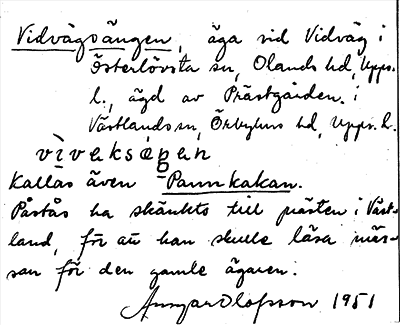 Vidvägsängen, äga vid Vidväg i
Österlövsta sn, Olands hd, Upps.
l., ägd av Prästgården i
Västlands sn, Örbyhus hd, Upps. l.
Kallas även "Pannkakan.
Påstås ha skänkts till prästen i Väst-
land, för att han skulle läsa mäs-
san för den gamle ägaren.
Ansgar Olofsson 1951